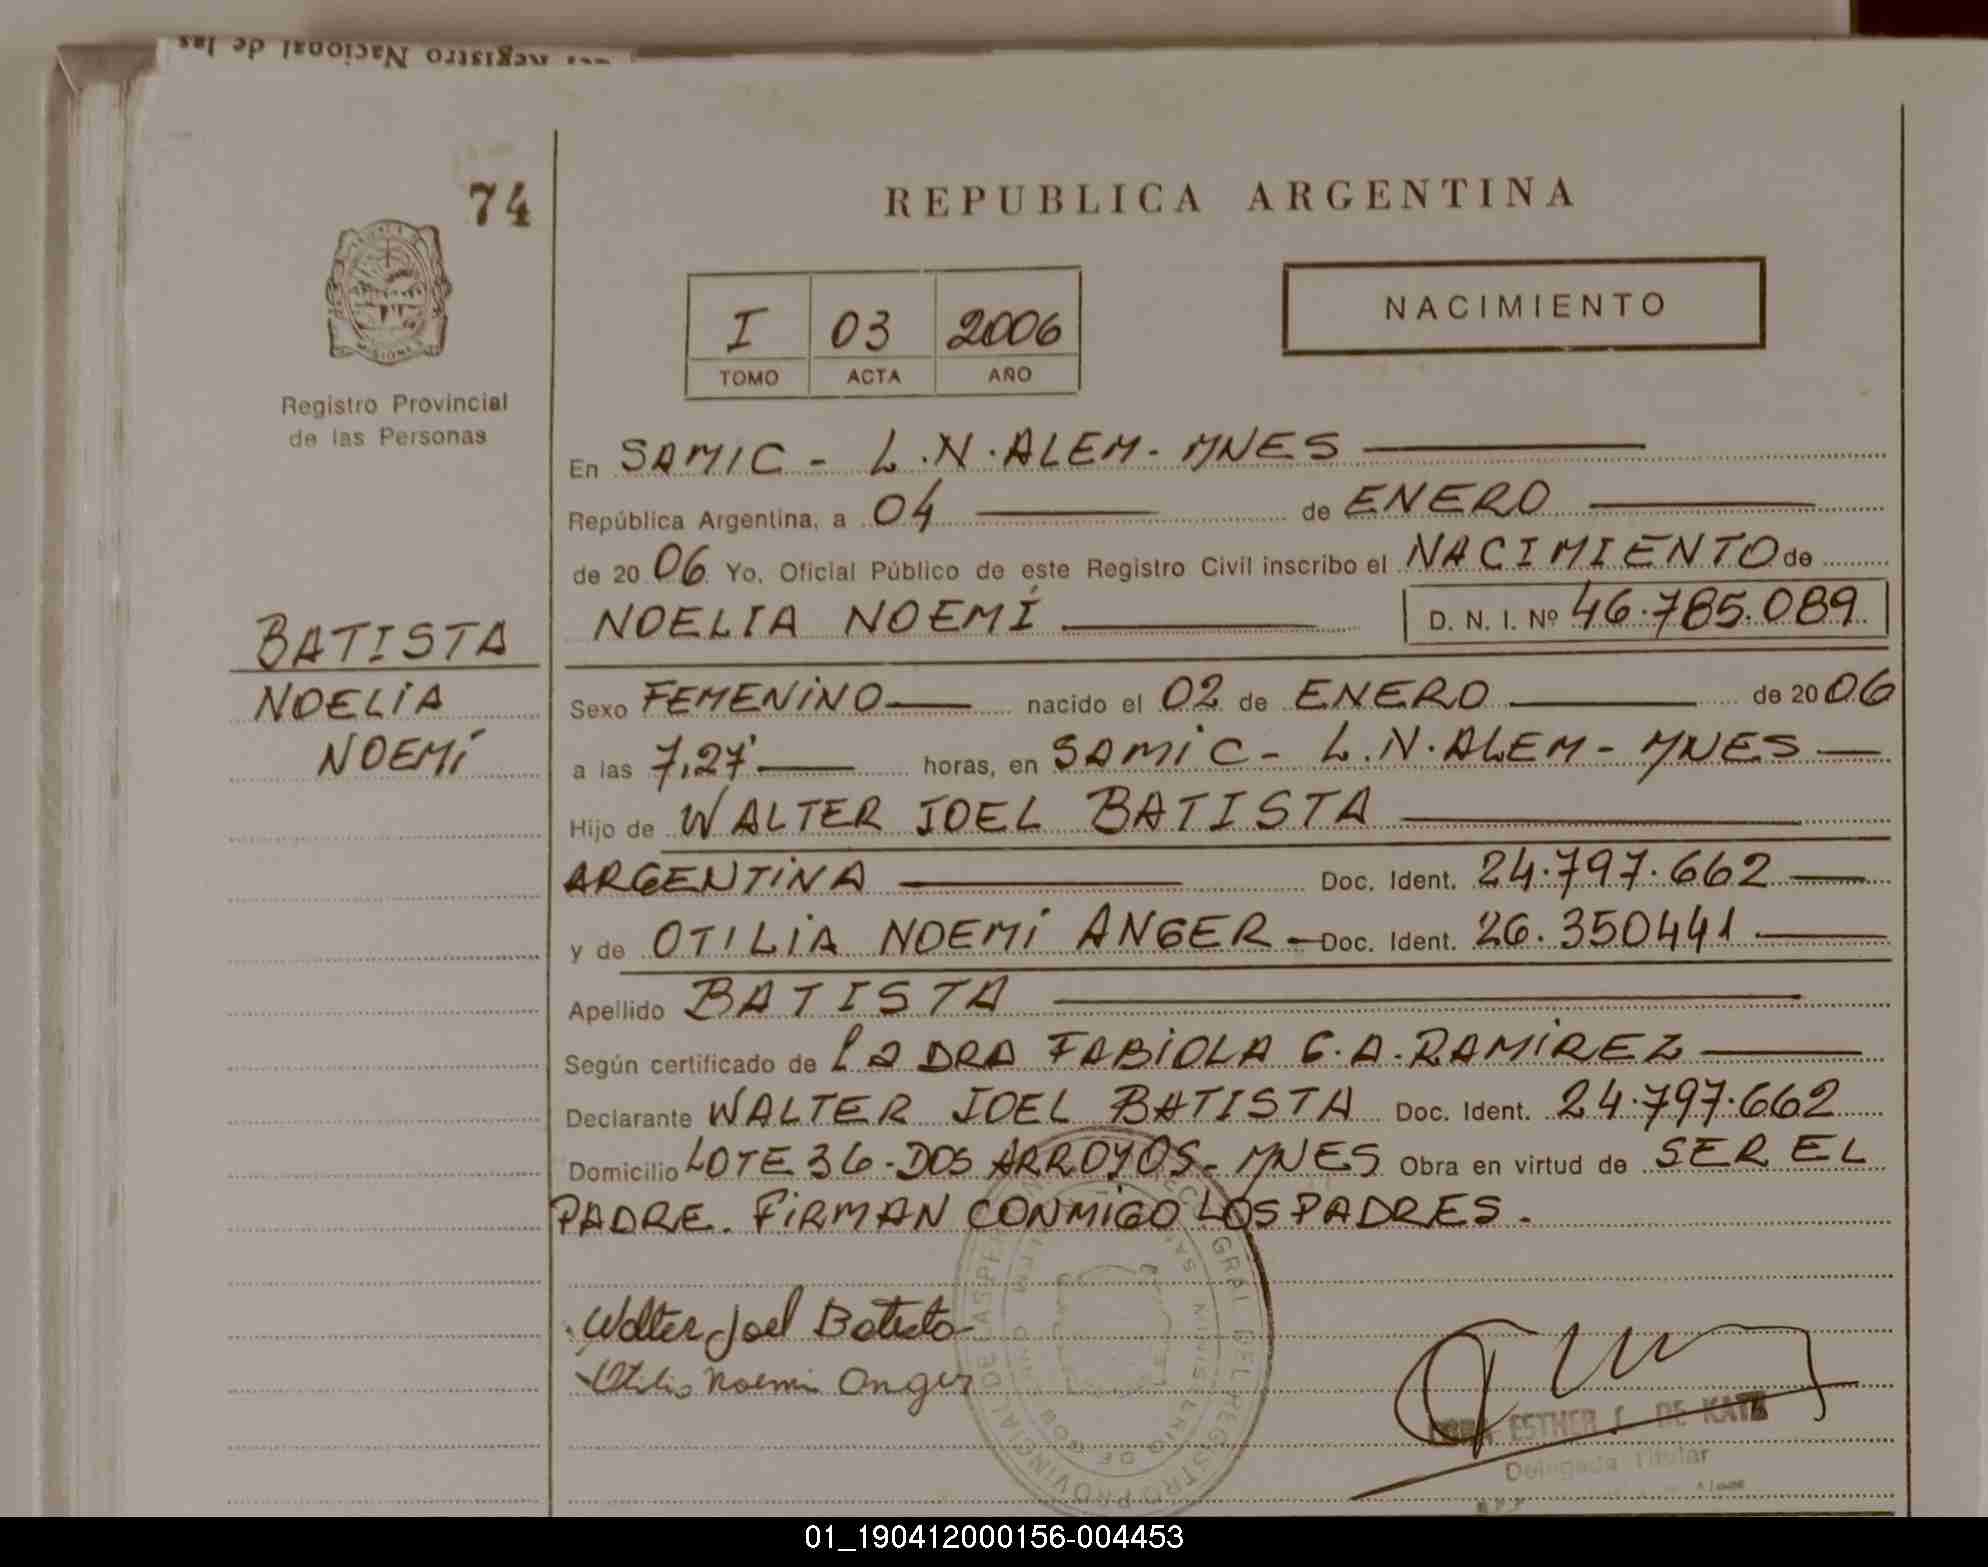 Registro Nacional de las
74
REPUBLICA ARGENTINA
I 03 2006
TOMO ACTA AÑO
NACIMIENTO
MISIONES
Registro Provincial
de las Personas
En SAMIC - L.N.ALEM - MNES
República Argentina, a 04 de ENERO
de 2006 Yo, Oficial Público de este Registro Civil inscribo el NACIMIENTO de
NOELIA NOEMÍ D. N. I. Nº 46.785.089
BATISTA
NOELIA
NOEMÍ
Sexo FEMENINO nacido el 02 de ENERO de 2006
a las 7,27' horas, en SAMIC - L.N.ALEM - MNES
Hijo de WALTER JOEL BATISTA
ARGENTINA Doc. Ident. 24.797.662
y de OTILIA NOEMI ANGER - Doc. Ident. 26.350441
Apellido BATISTA
Según certificado de la DRA FABIOLA G.A. RAMIREZ
Declarante WALTER JOEL BATISTA Doc. Ident. 24.797.662
Domicilio LOTE 36 - DOS ARROYOS - MNES Obra en virtud de SER EL
PADRE. FIRMAN CONMIGO LOS PADRES.
Walter Joel Batista
Otilia Noemi Anger
ESTHER DE KATZ
Delegada Titular
01_190412000156-004453